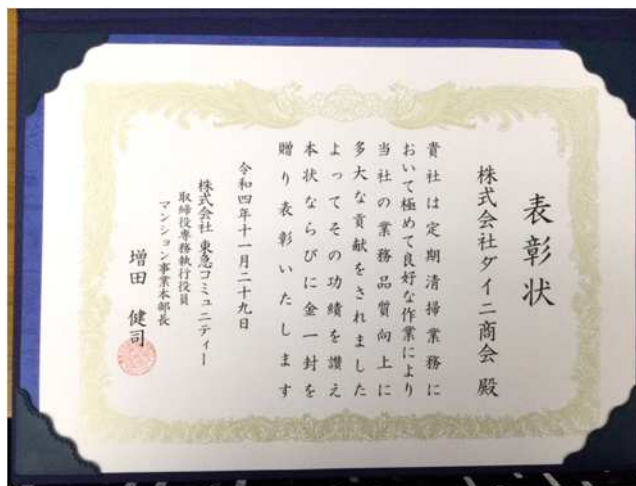 表彰状
株式会社ダイニ商会 殿
貴社は定期清掃業務に
おいて極めて良好な作業により
当社の業務品質向上に
多大な貢献をされました
よってその功績を讃え
本状ならびに金一封を
贈り表彰いたします
令和四年十一月二十九日
株式会社 東急コミュニティー
取締役専務執行役員
マンション事業本部長
増田 健司